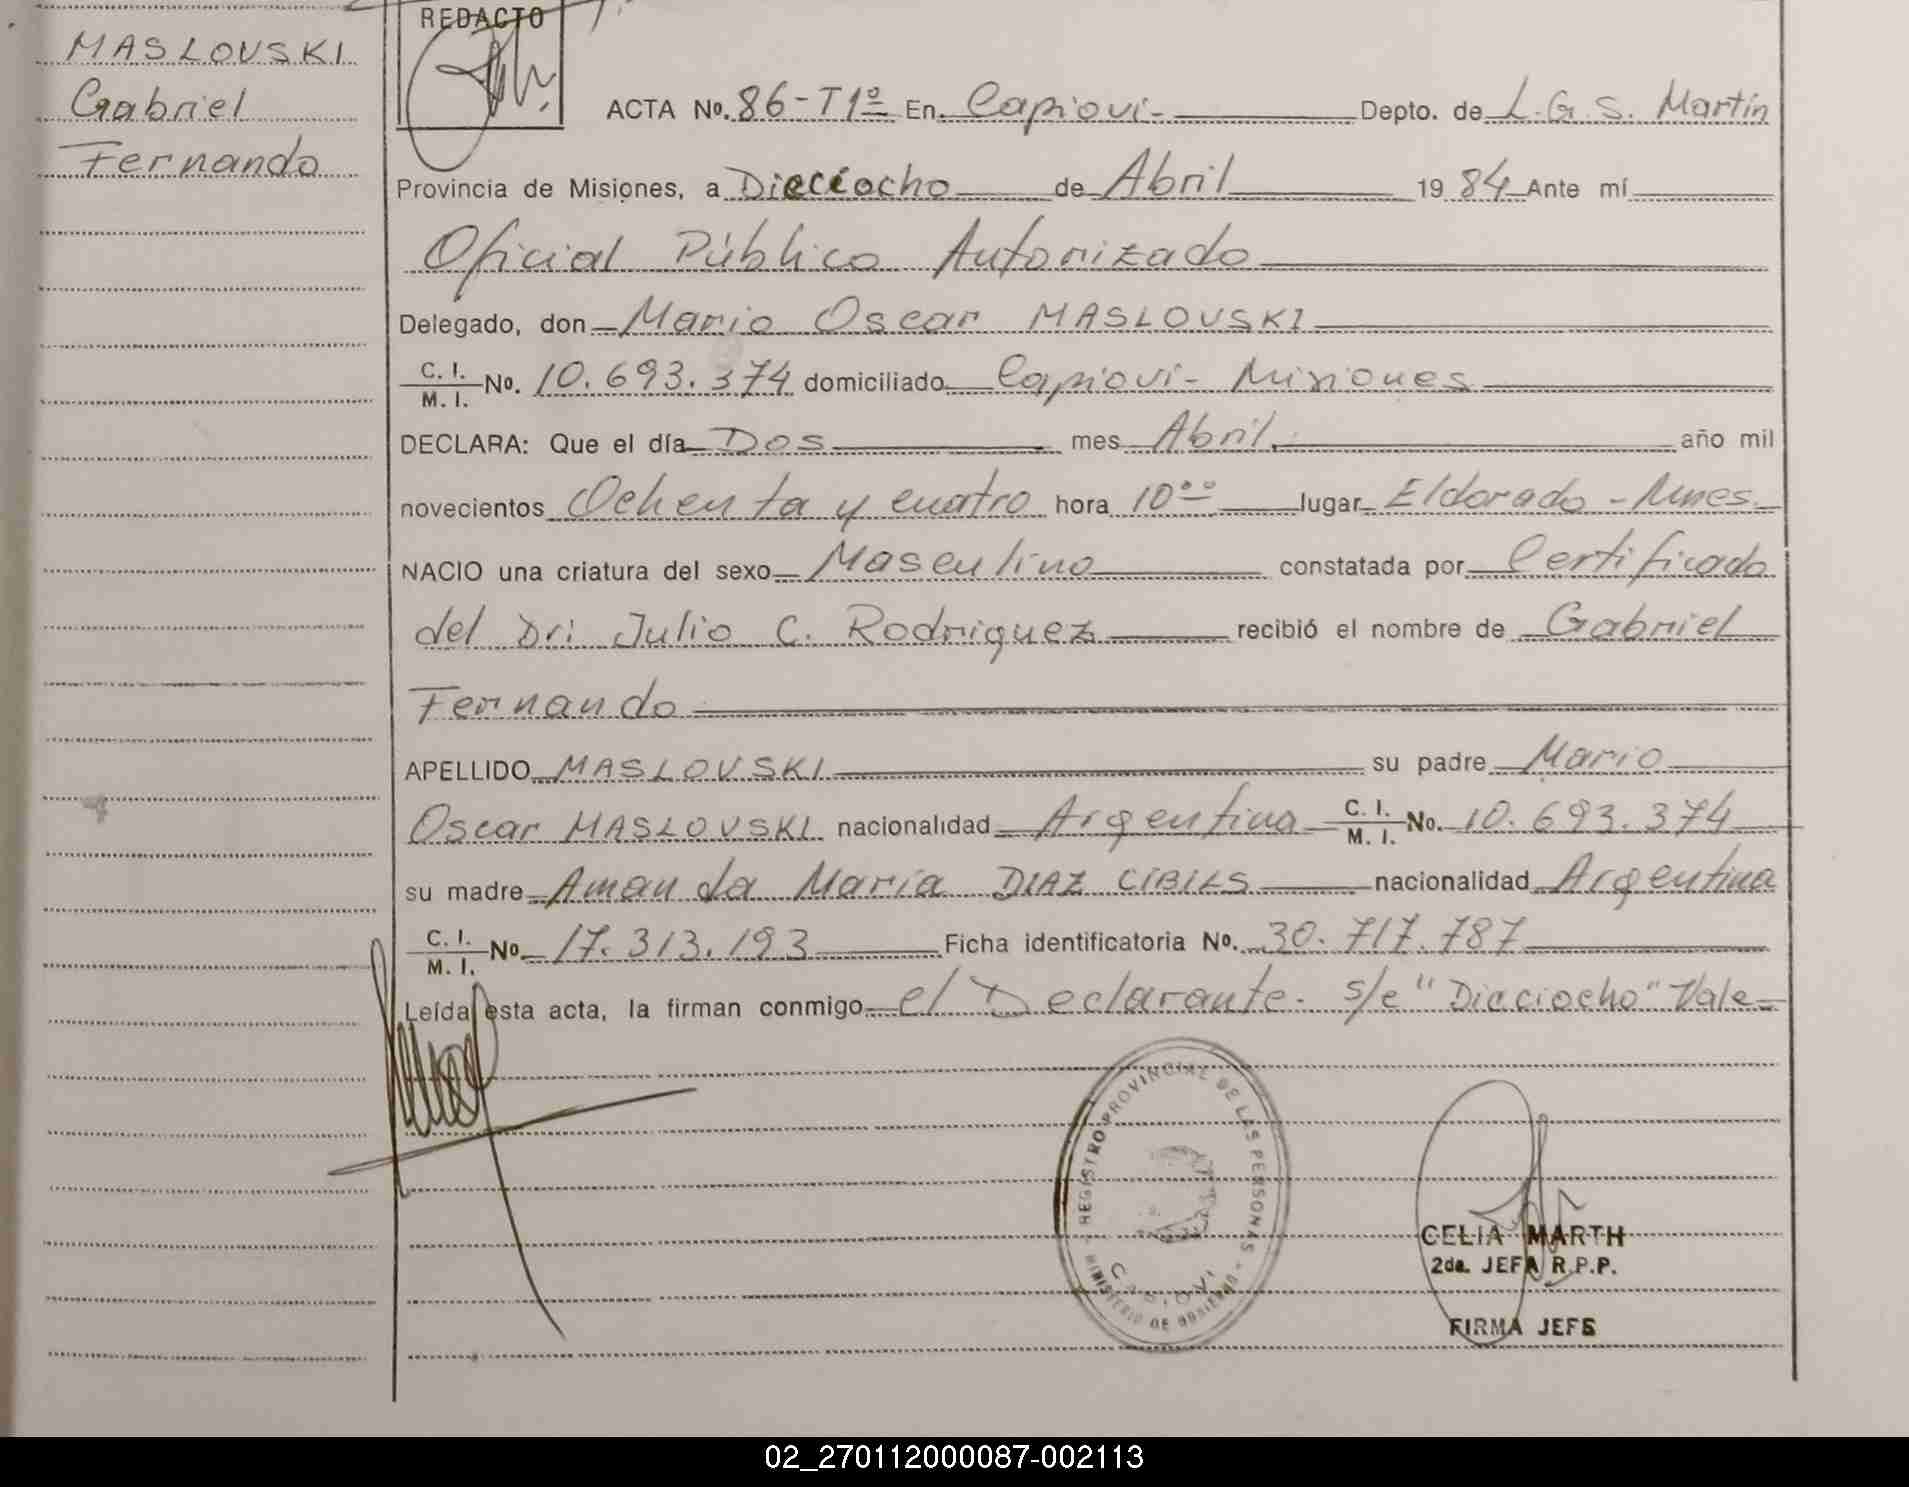 MASLOVSKI
Gabriel
Fernando
REDACTO
ACTA No. 86-T1º En Capiovi- Depto. de L.G.S. Martín
Provincia de Misiones, a Dieciocho de Abril 1984 Ante mí
Oficial Público Autorizado
Delegado, don Mario Oscar MASLOVSKI
C. I.
M. I. No. 10.693.374 domiciliado Capiovi- Misiones
DECLARA: Que el día Dos mes Abril. año mil
novecientos Ochenta y cuatro hora 10ºº lugar Eldorado - Mnes.
NACIO una criatura del sexo Masculino constatada por Certificado
del Dr: Julio C. Rodriguez recibió el nombre de Gabriel
Fernando
APELLIDO MASLOVSKI su padre Mario
Oscar MASLOVSKI nacionalidad Argentina C. I. M. I. No. 10.693.374
su madre Amanda María DIAZ CIBILS nacionalidad Argentina
C. I.
M. I. No. 17.313.193 Ficha identificatoria No. 30.717.787
Leída esta acta, la firman conmigo el Declarante. s/e "Dieciocho" Vale-
REGISTRO PROVINCIAL DE LAS PERSONAS
MINISTERIO DE GOBIERNO
CAPIOVI
CELIA MARTH
2da. JEFA R.P.P.
FIRMA JEFE
02_270112000087-002113